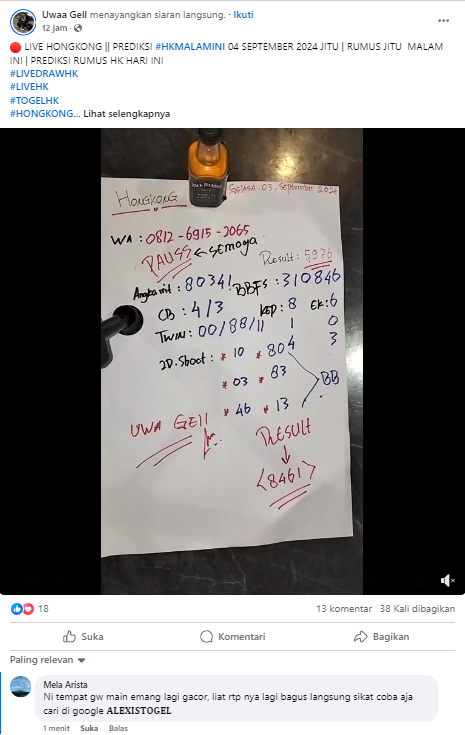 Uwaa Gell menayangkan siaran langsung. · Ikuti
12 jam ·
🔴 LIVE HONGKONG || PREDIKSI #HKMALAMINI 04 SEPTEMBER 2024 JITU | RUMUS JITU MALAM
INI | PREDIKSI RUMUS HK HARI INI
#LIVEDRAWHK
#LIVEHK
#TOGELHK
#HONGKONG... Lihat selengkapnya
HONGKONG
SELASA.03.September 2024
WA : 0812-6915-2065
PAUSS ← SEMOGA
Result : 5976
Angka init : 80341
BBFS : 310846
CB : 4/3
KEP : 8 EK : 6
TWIN : 00/88/11
1 0
2D.Sboot : * 10 * 804
3
* 03 * 83
BB
* 46 * 13
UWA GEll
RESULT
↓
<8461>
18
13 komentar 38 Kali dibagikan
Suka Komentari Bagikan
Paling relevan
Mela Arista
Ni tempat gw main emang lagi gacor, liat rtp nya lagi bagus langsung sikat coba aja
cari di google ALEXISTOGEL
1 menit Suka Balas